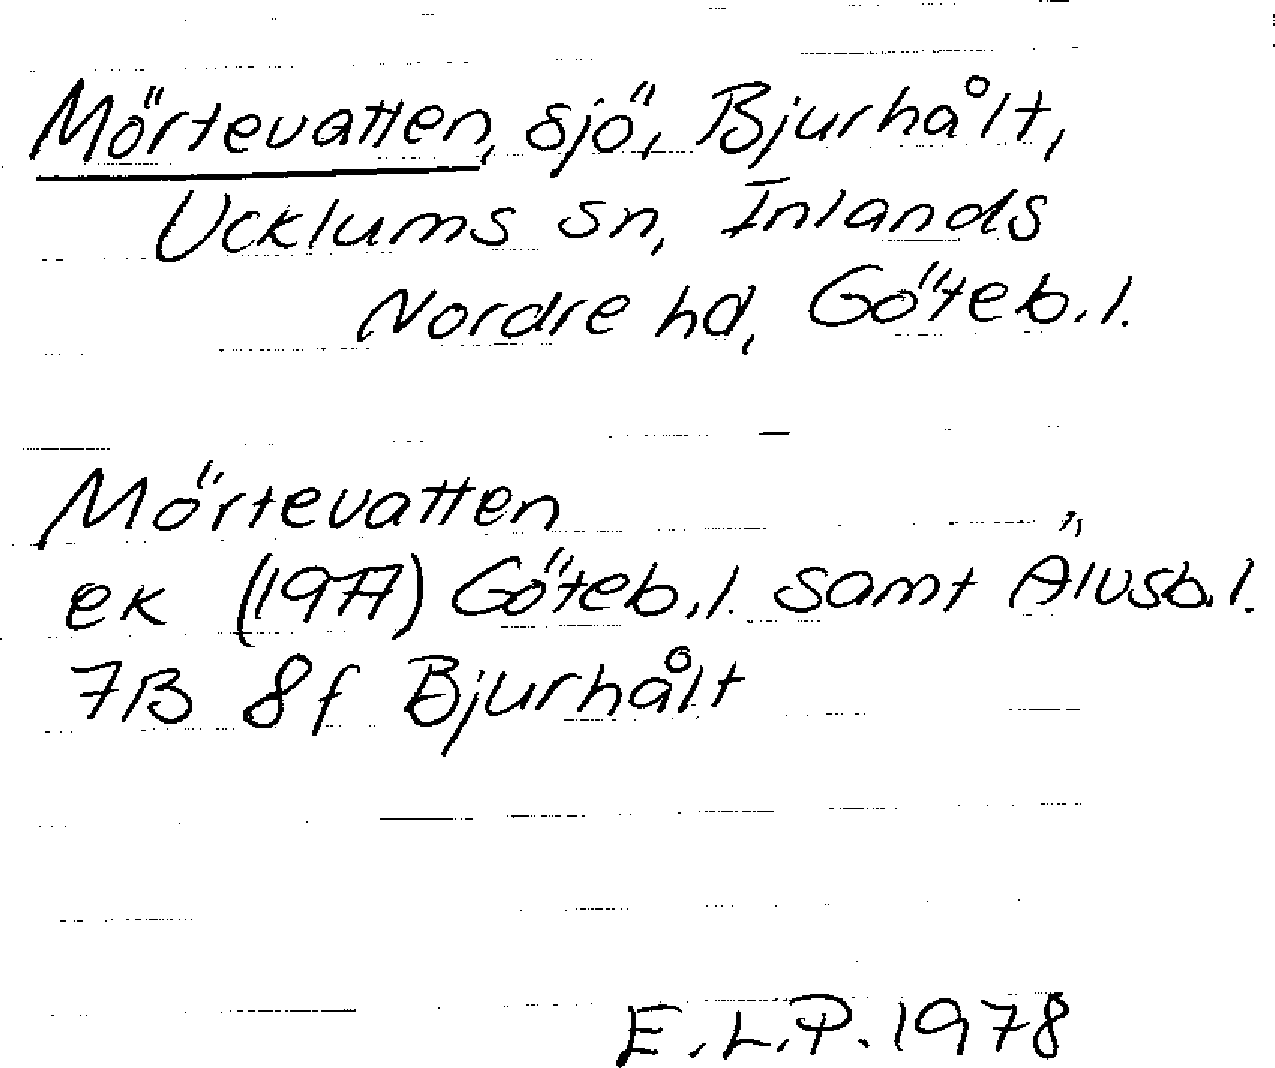 Mörtevatten, sjö, Bjurhålt,
Ucklums sn, Inlands
Nordre hd, Göteb.l.
Mörtevatten
ek (1977) Göteb.l. samt Älvsb.l.
7B 8f Bjurhålt
E.L.P. 1978